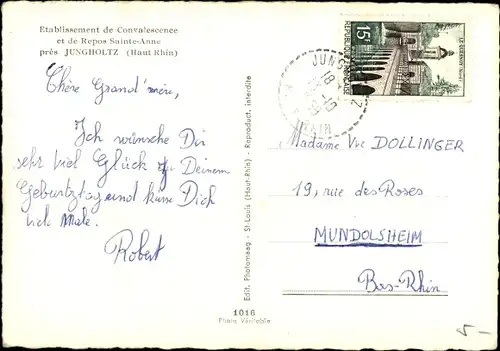 Etablissement de Convalescence
et de Repos Sainte-Anne
près JUNGHOLTZ (Haut Rhin)
Chère Grand'mère,
Ich wünsche Dir
sehr viel Glück zu Deinem
Geburtztag und küsse Dich
viele Male.
Robert
Edit. Photomaag - St-Louis (Haut-Rhin) - Reproduct. interdite
1016
Photo Véritable
15F
LE QUESNOY (Nord)
REPUBLIQUE FRANÇAISE
Madame Vve DOLLINGER
19, rue des Roses
MUNDOLSHEIM
Bas-Rhin
5-